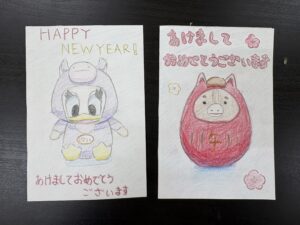 HAPPY
NEW YEAR!
あけましておめでとう
ございます
あけまして
おめでとうございます
午